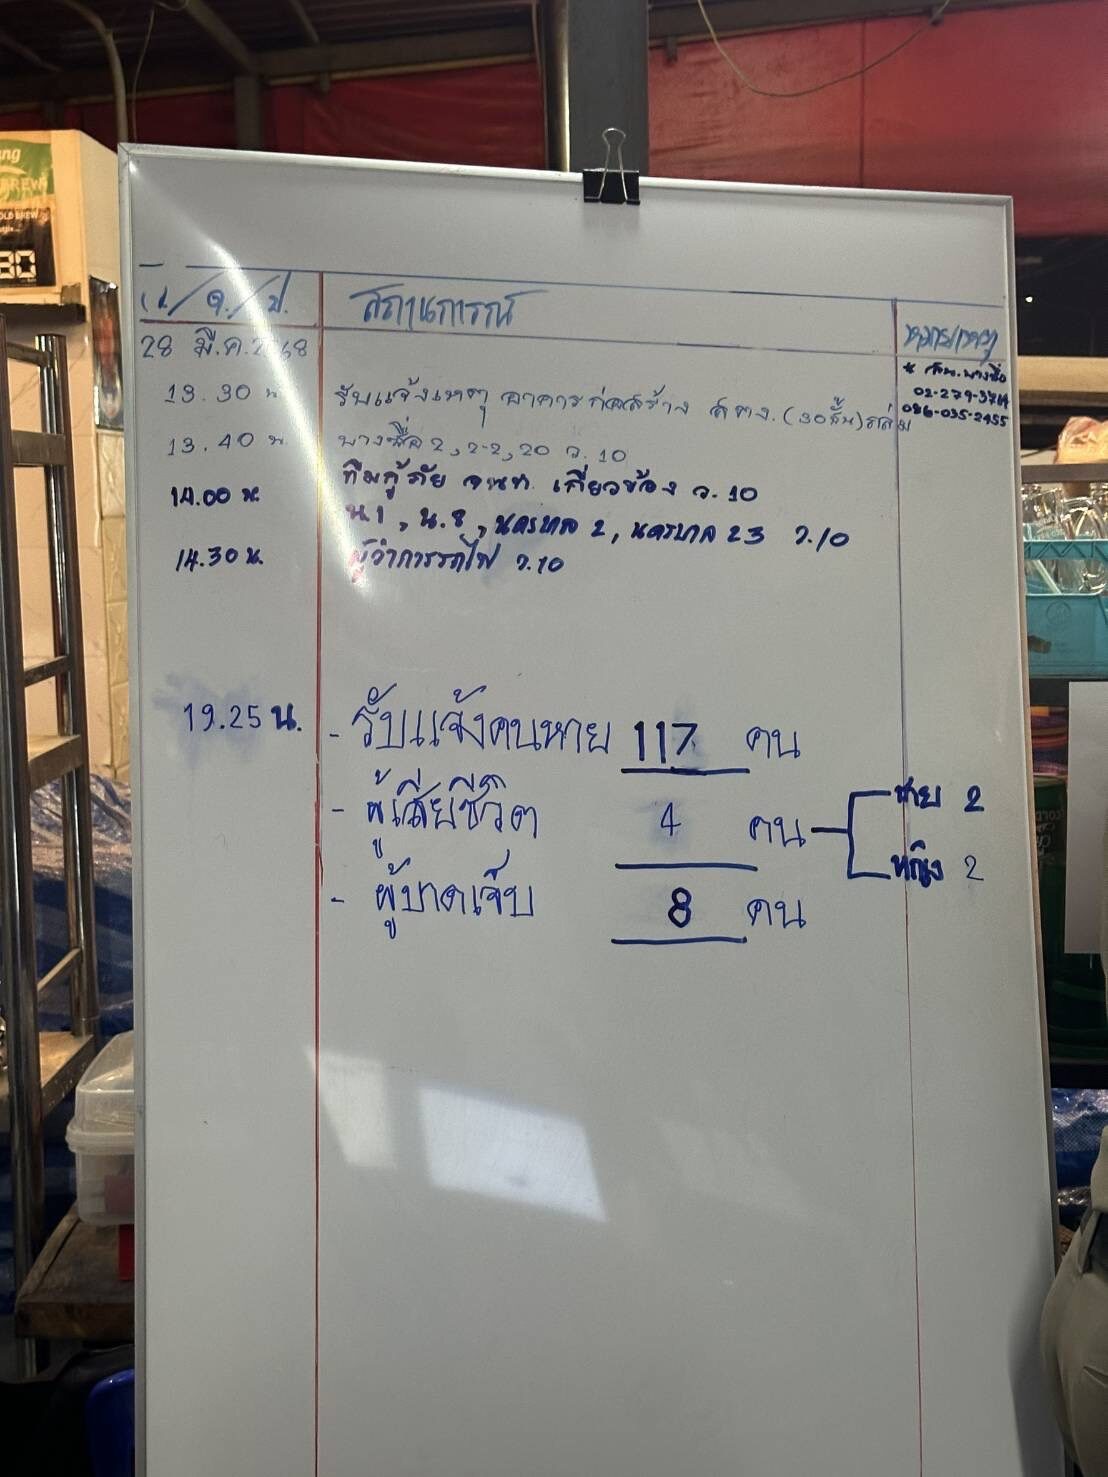 ว./ด./ป.
สถานการณ์
หมายเหตุ
28 มี.ค.2568
* สน.บางซื่อ
02-279-3714
086-035-2455
13.30 น.
รับแจ้งเหตุ อาคารก่อสร้าง สตง.(30ชั้น)ถล่ม
13.40 น.
บางซื่อ 2, 2-2, 20 ว.10
ทีมกู้ภัย จนท. เกี่ยวข้อง ว.10
14.00 น.
น.1, น.8, นครบาล 2, นครบาล 23 ว.10
14.30 น.
ผู้ว่าการรถไฟ ว.10
19.25 น.
- รับแจ้งคนหาย 117 คน
- ผู้เสียชีวิต 4 คน
ชาย 2
หญิง 2
- ผู้บาดเจ็บ 8 คน